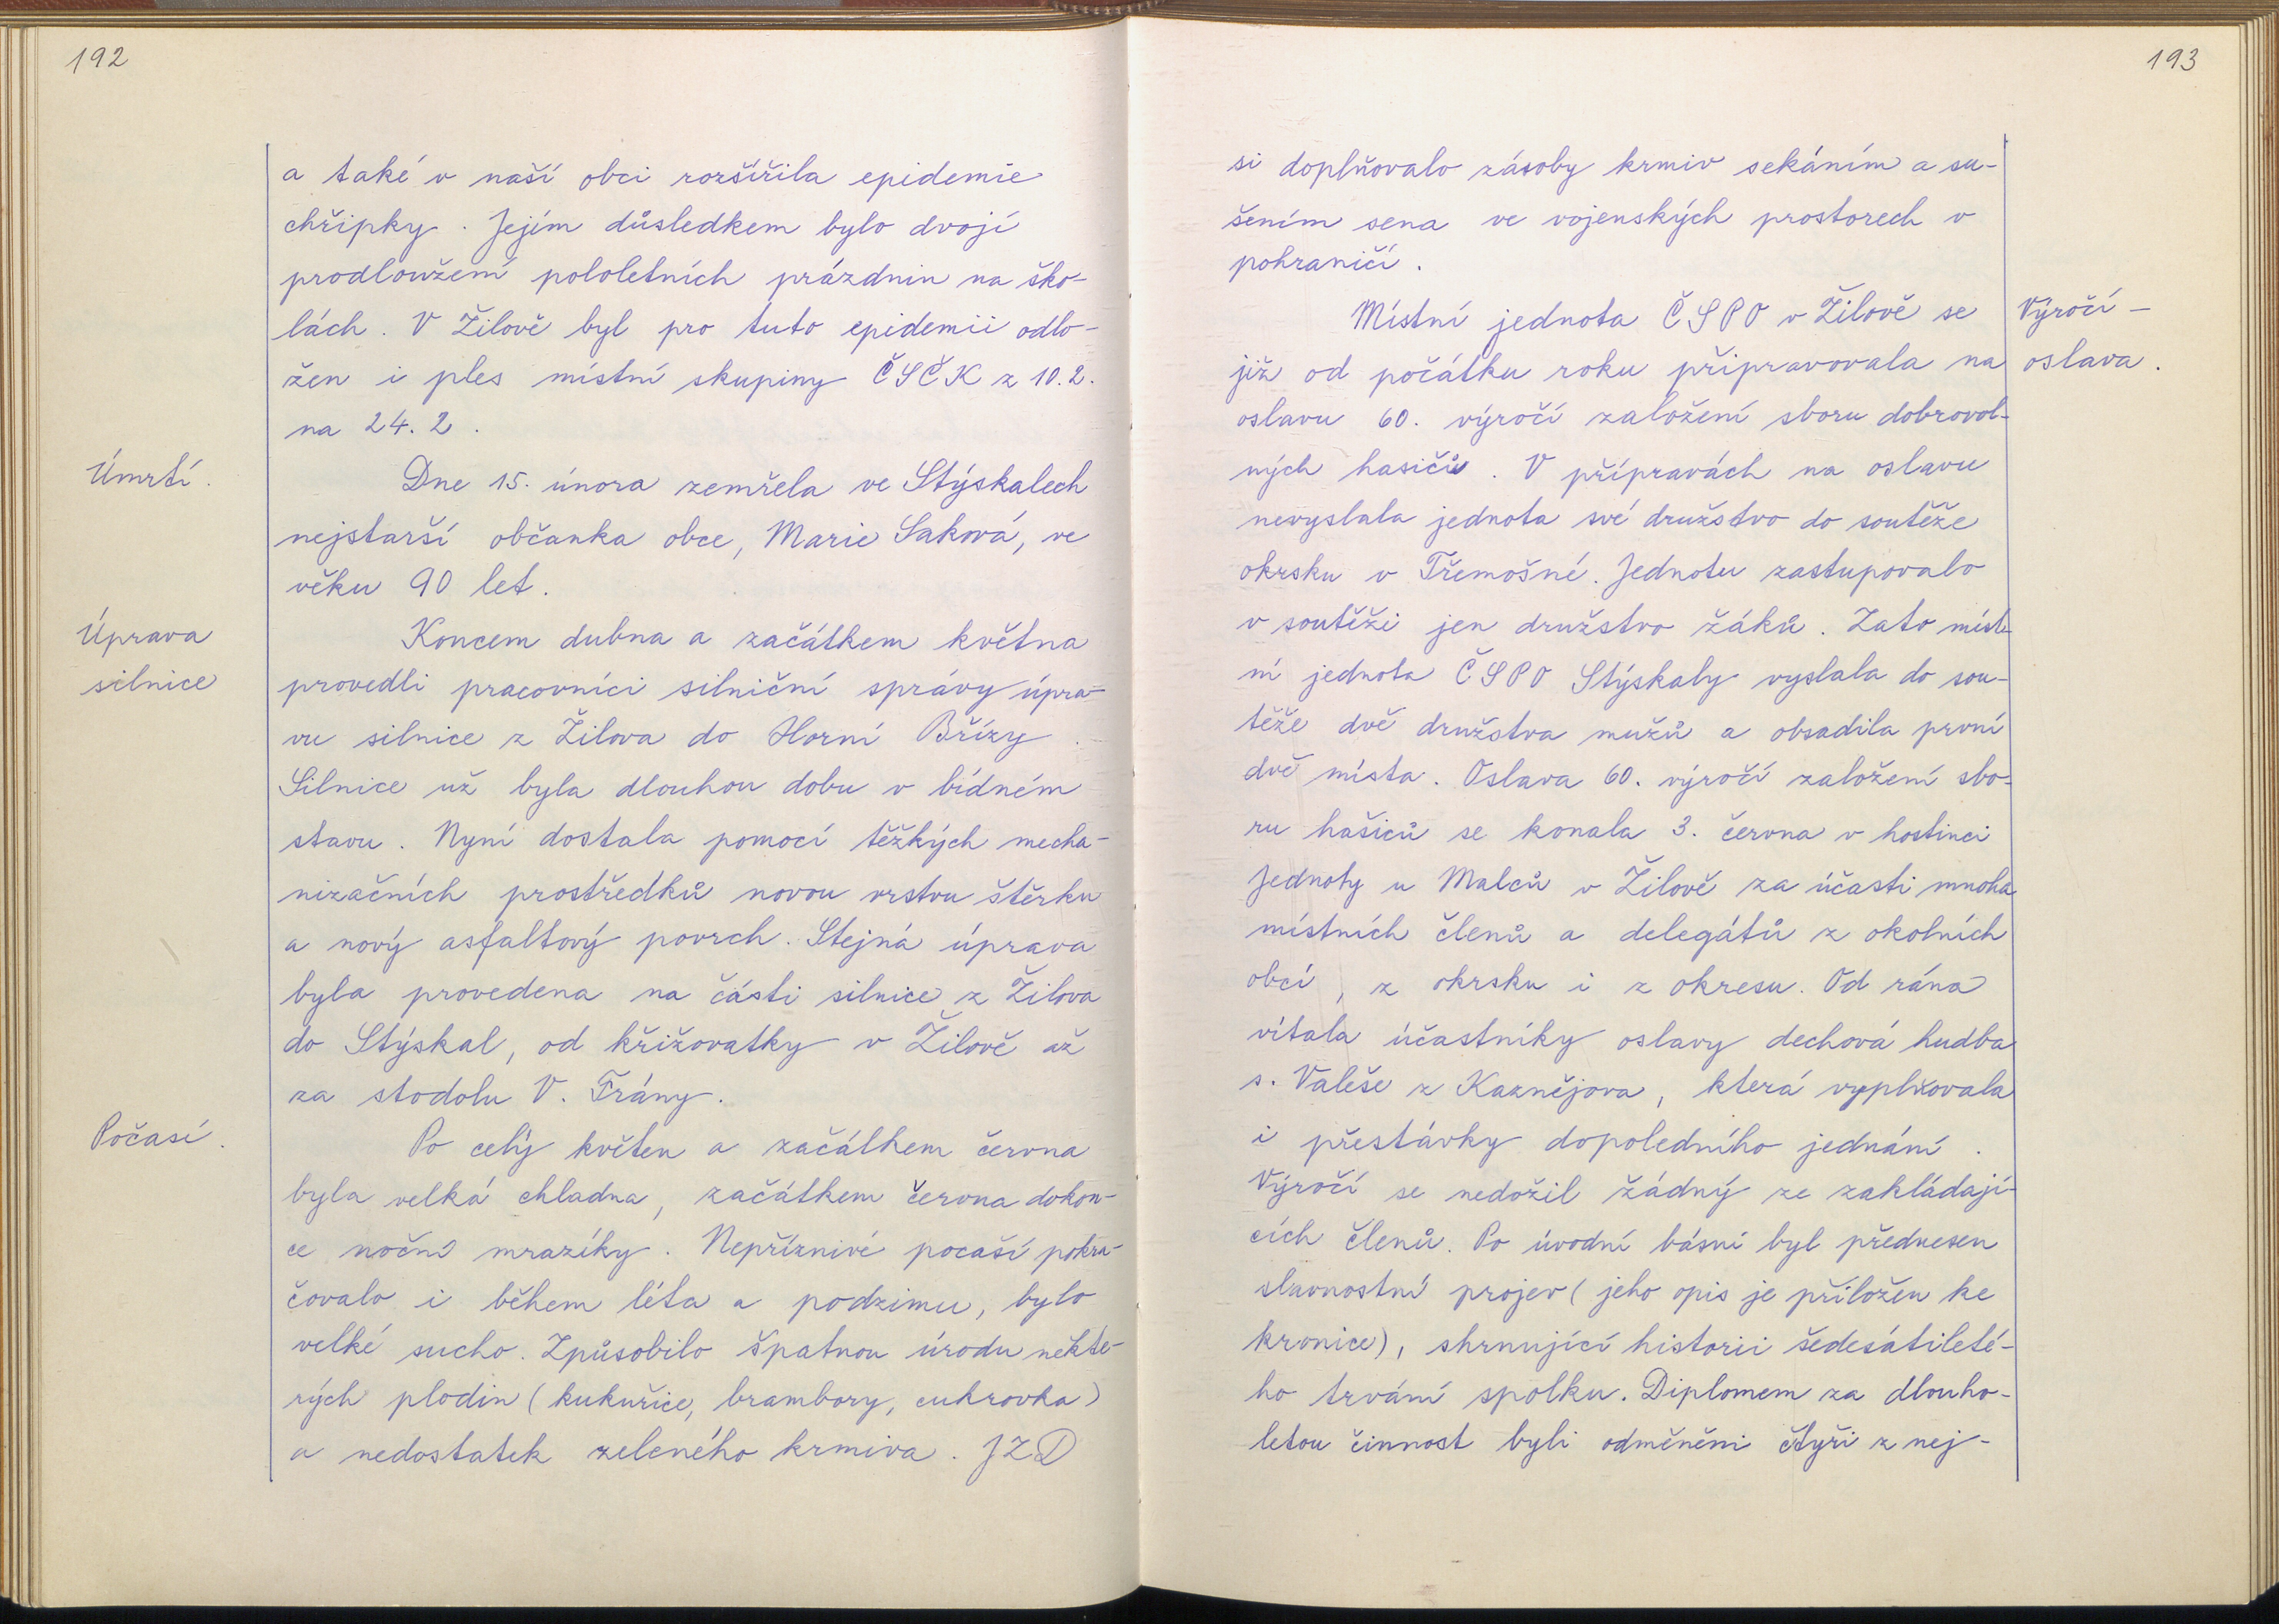 192
a také v naší obci rozšířila epidemie
chřipky. Jejím důsledkem bylo dvojí
prodloužení pololetních prázdnin na ško-
lách. V Žilově byl pro tuto epidemii odlo-
žen i ples místní skupiny ČSČK z 10.2.
na 24.2.
Úmrtí.
Dne 15. února zemřela ve Stýskalech
nejstarší občanka obce, Marie Saková, ve
věku 90 let.
Úprava
silnice
Koncem dubna a začátkem května
provedli pracovníci silniční správy úpra-
vu silnice z Žilova do Horní Břízy.
Silnice už byla dlouhou dobu v bídném
stavu. Nyní dostala pomocí těžkých mecha-
nizačních prostředků novou vrstvu štěrku
a nový asfaltový povrch. Stejná úprava
byla provedena na části silnice z Žilova
do Stýskal, od křižovatky v Žilově až
za stodolu V. Frány.
Počasí.
Po celý květen a začátkem června
byla velká chladna, začátkem června dokon-
ce noční mrazíky. Nepříznivé pocaší pokra-
čovalo i během léta a podzimu, bylo
velké sucho. Způsobilo špatnou úrodu někte-
rých plodin (kukuřice, brambory, cukrovka)
a nedostatek zeleného krmiva. JZD
193
si doplňovalo zásoby krmiv sekáním a su-
šením sena ve vojenských prostorech v
pohraničí.
Výročí-
oslava.
Místní jednota ČSPO v Žilově se
již od počátku roku připravovala na
oslavu 60. výročí založení sboru dobrovol-
ných hasičů. V přípravách na oslavu
nevyslala jednota své družstvo do soutěže
okrsku v Třemošné. Jednotu zastupovalo
v soutěži jen družstvo žáků. Zato míst-
ní jednota ČSPO Stýskaly vyslala do sou-
těže dvě družstva mužů a obsadila první
dvě místa. Oslava 60. výročí založení sbo-
ru hašiců se konala 3. června v hostinci
Jednoty u Malců v Žilově za účasti mnoha
místních členů a delegátů z okolních
obcí, z okrsku i z okresu. Od rána
vítala účastníky oslavy dechová hudba
s. Valeše z Kaznějova, která vyplňovala
i přestávky dopoledního jednání.
Výročí se nedožil žádný ze zakládají-
cích členů. Po úvodní básni byl přednesen
slavnostní projev (jeho opis je přiložen ke
kronice), shrnující historii šedesátileté-
ho trvání spolku. Diplomem za dlouho-
letou činnost byli odměněni čtyři z nej-